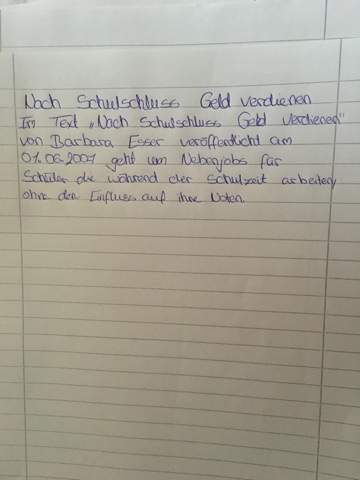 Nach Schulschluss Geld verdienen
Im Text „Nach Schulschluss Geld verdienen"
von Barbara Esser veröffentlicht am
01.06.2007 geht um Nebenjobs für
Schüler die während der Schulzeit arbeiten
ohne den Einfluss auf ihre Noten.